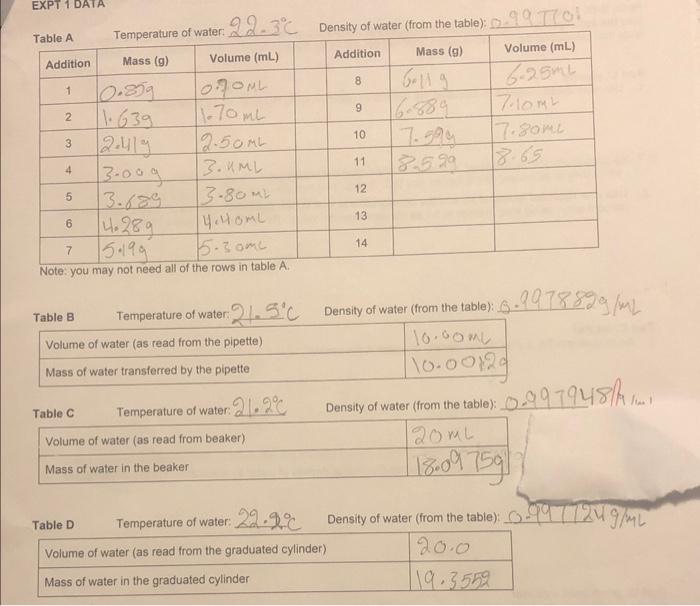 EXPT 1 DATA
Table A Temperature of water: 22.3°C Density of water (from the table): 0.99770
Addition Mass (g) Volume (mL) Addition Mass (g) Volume (mL)
1 0.85g 0.90mL 8 6.11g 6.25mL
2 1.63g 1.70mL 9 6.88g 7.10mL
3 2.41g 2.50mL 10 7.59g 7.80mL
4 3.00g 11 8.52g 8.65
5 3.68g 3.80mL 12
6 4.28g 4.40mL 13
7 5.19g 5.30mL 14
Note: you may not need all of the rows in table A.
Table B Temperature of water: 21.5°C Density of water (from the table): 0.997882g/mL
Volume of water (as read from the pipette) 10.00mL
Mass of water transferred by the pipette 10.0012g
Table C Temperature of water: 21.2°C Density of water (from the table): 0.997948
Volume of water (as read from beaker) 20mL
Mass of water in the beaker 18.0975g
Table D Temperature of water: 22.2°C Density of water (from the table): 0.997724g/mL
Volume of water (as read from the graduated cylinder) 20.0
Mass of water in the graduated cylinder 19.3552